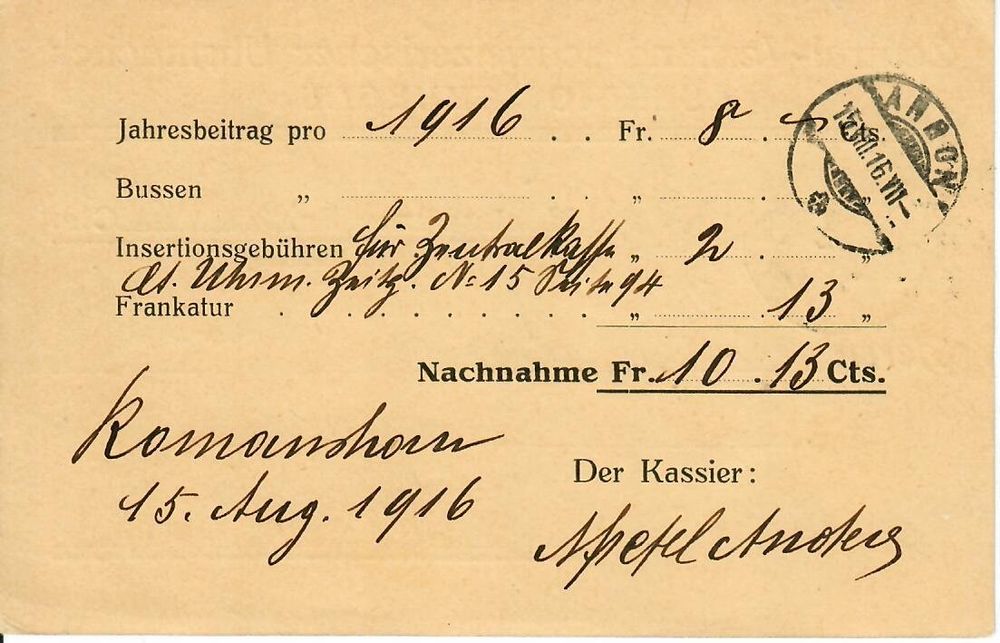 Jahresbeitrag pro 1916 . . Fr. 8 . – Cts.
Bussen „ . . „ . „
Insertionsgebühren für Zentralkasse „ 2 . „
lt. Uhrm. Zeitg. No 15 Seite 94
Frankatur . . . . . . . . . „ . 13 „
Nachnahme Fr. 10 . 13 Cts.
Romanshorn
15. Aug. 1916
Der Kassier: